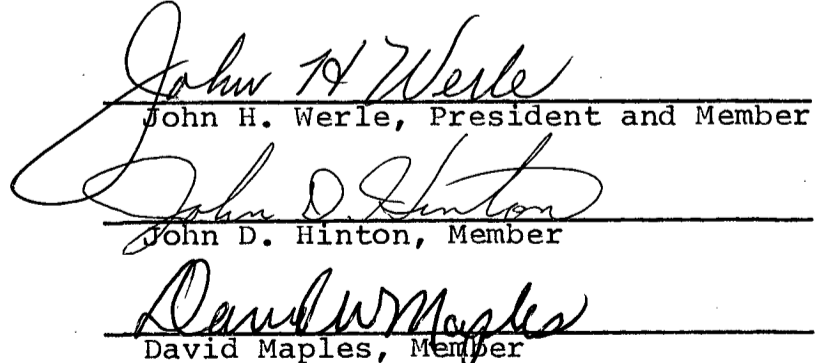 John H Werle
John H. Werle, President and Member
John D. Hinton
John D. Hinton, Member
David W Maples
David Maples, Member